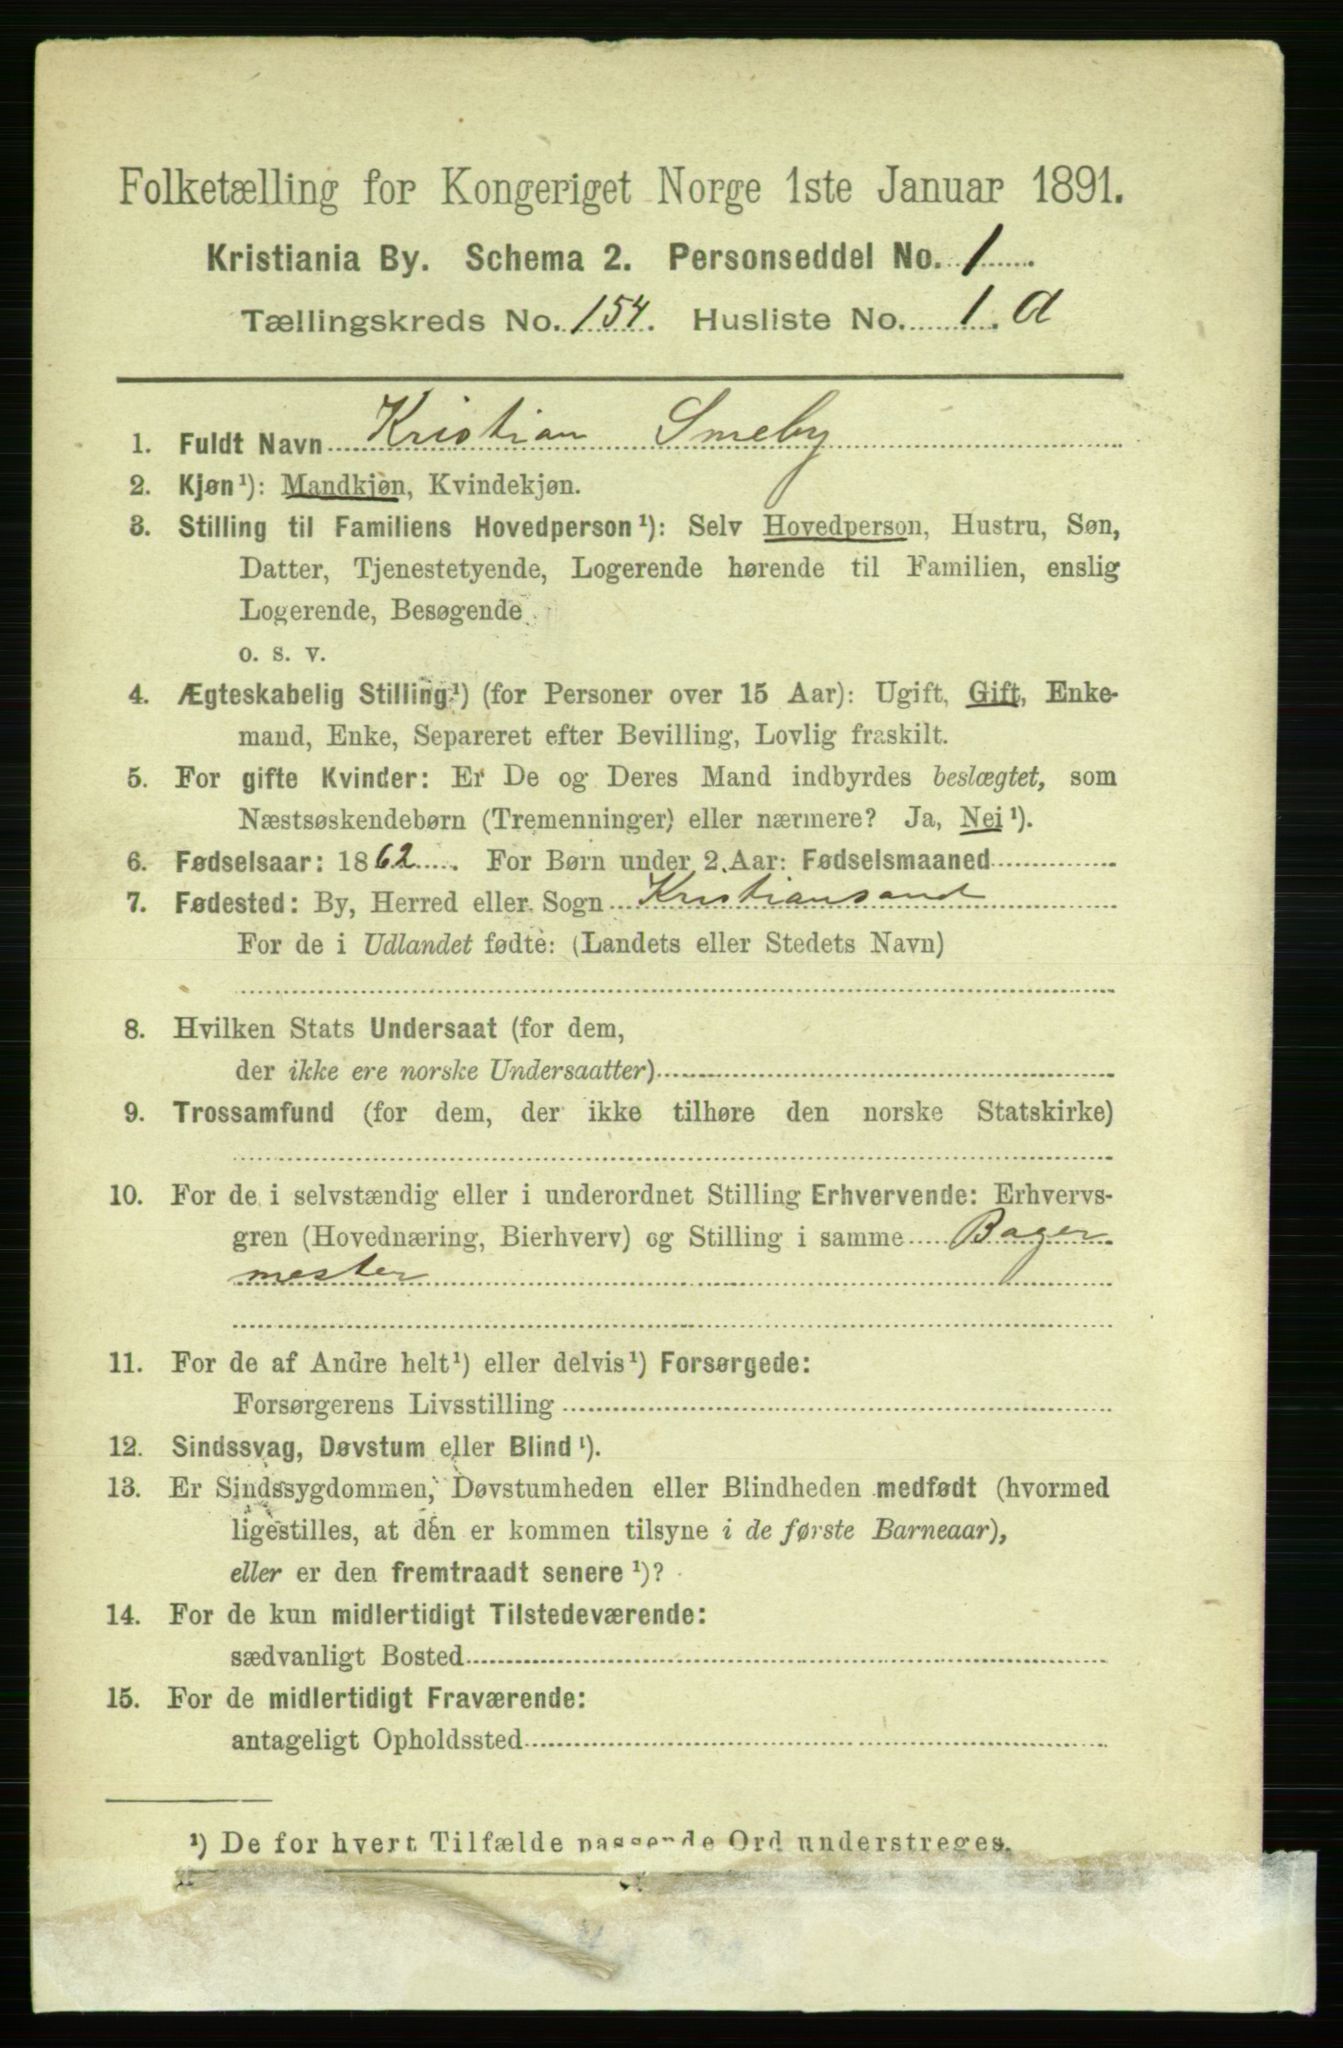 Folketælling for Kongeriget Norge 1ste Januar 1891.
Kristiania By. Schema 2. Personseddel No. 1
Tællingskreds No. 154. Husliste No. 1. a
1. Fuldt Navn Kristian Smeby
2. Kjøn¹): Mandkjøn, Kvindekjøn.
3. Stilling til Familiens Hovedperson¹): Selv Hovedperson, Hustru, Søn,
Datter, Tjenestetyende, Logerende hørende til Familien, enslig
Logerende, Besøgende
o. s. v.
4. Ægteskabelig Stilling¹) (for Personer over 15 Aar): Ugift, Gift, Enke-
mand, Enke, Separeret efter Bevilling, Lovlig fraskilt.
5. For gifte Kvinder: Er De og Deres Mand indbyrdes beslægtet, som
Næstsøskendebørn (Tremenninger) eller nærmere? Ja, Nei¹).
6. Fødselsaar: 1862. For Børn under 2 Aar: Fødselsmaaned
7. Fødested: By, Herred eller Sogn Kristiansand
For de i Udlandet fødte: (Landets eller Stedets Navn)
8. Hvilken Stats Undersaat (for dem,
der ikke ere norske Undersaatter)
9. Trossamfund (for dem, der ikke tilhøre den norske Statskirke)
10. For de i selvstændig eller i underordnet Stilling Erhvervende: Erhvervs-
gren (Hovednæring, Bierhverv) og Stilling i samme Bager
mester
11. For de af Andre helt¹) eller delvis¹) Forsørgede:
Forsørgerens Livsstilling
12. Sindssvag, Døvstum eller Blind¹).
13. Er Sindssygdommen, Døvstumheden eller Blindheden medfødt (hvormed
ligestilles, at den er kommen tilsyne i de første Barneaar),
eller er den fremtraadt senere¹)?
14. For de kun midlertidigt Tilstedeværende:
sædvanligt Bosted
15. For de midlertidigt Fraværende:
antageligt Opholdssted
¹) De for hvert Tilfælde passende Ord understreges.